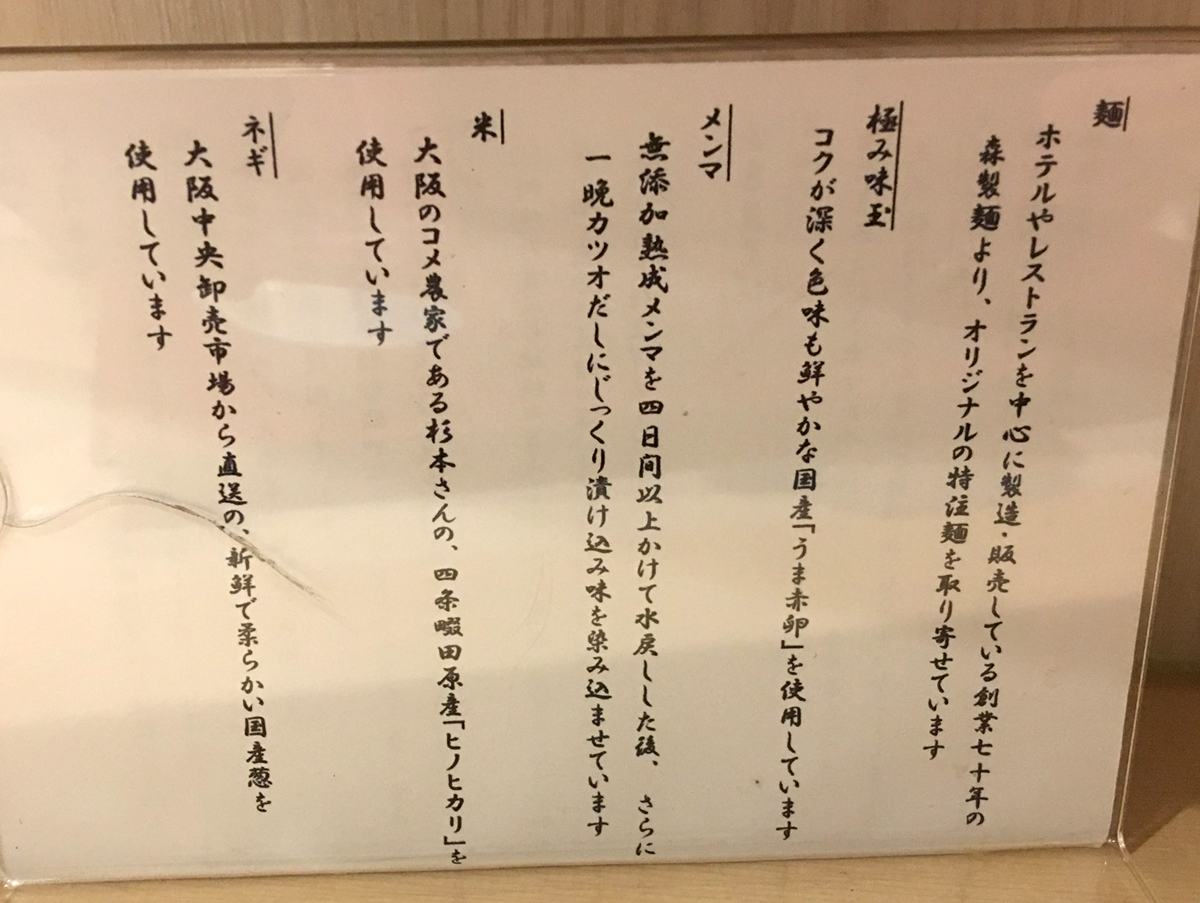 麺
ホテルやレストランを中心に製造・販売している創業七十年の
森製麺より、オリジナルの特注麺を取り寄せています
極み味玉
コクが深く色味も鮮やかな国産「うま赤卵」を使用しています
メンマ
無添加熟成メンマを四日間以上かけて水戻しした後、さらに
一晩カツオだしにじっくり漬け込み味を染み込ませています
米
大阪のコメ農家である杉本さんの、四条畷田原産「ヒノヒカリ」を
使用しています
ネギ
大阪中央卸売市場から直送の、新鮮で柔らかい国産葱を
使用しています